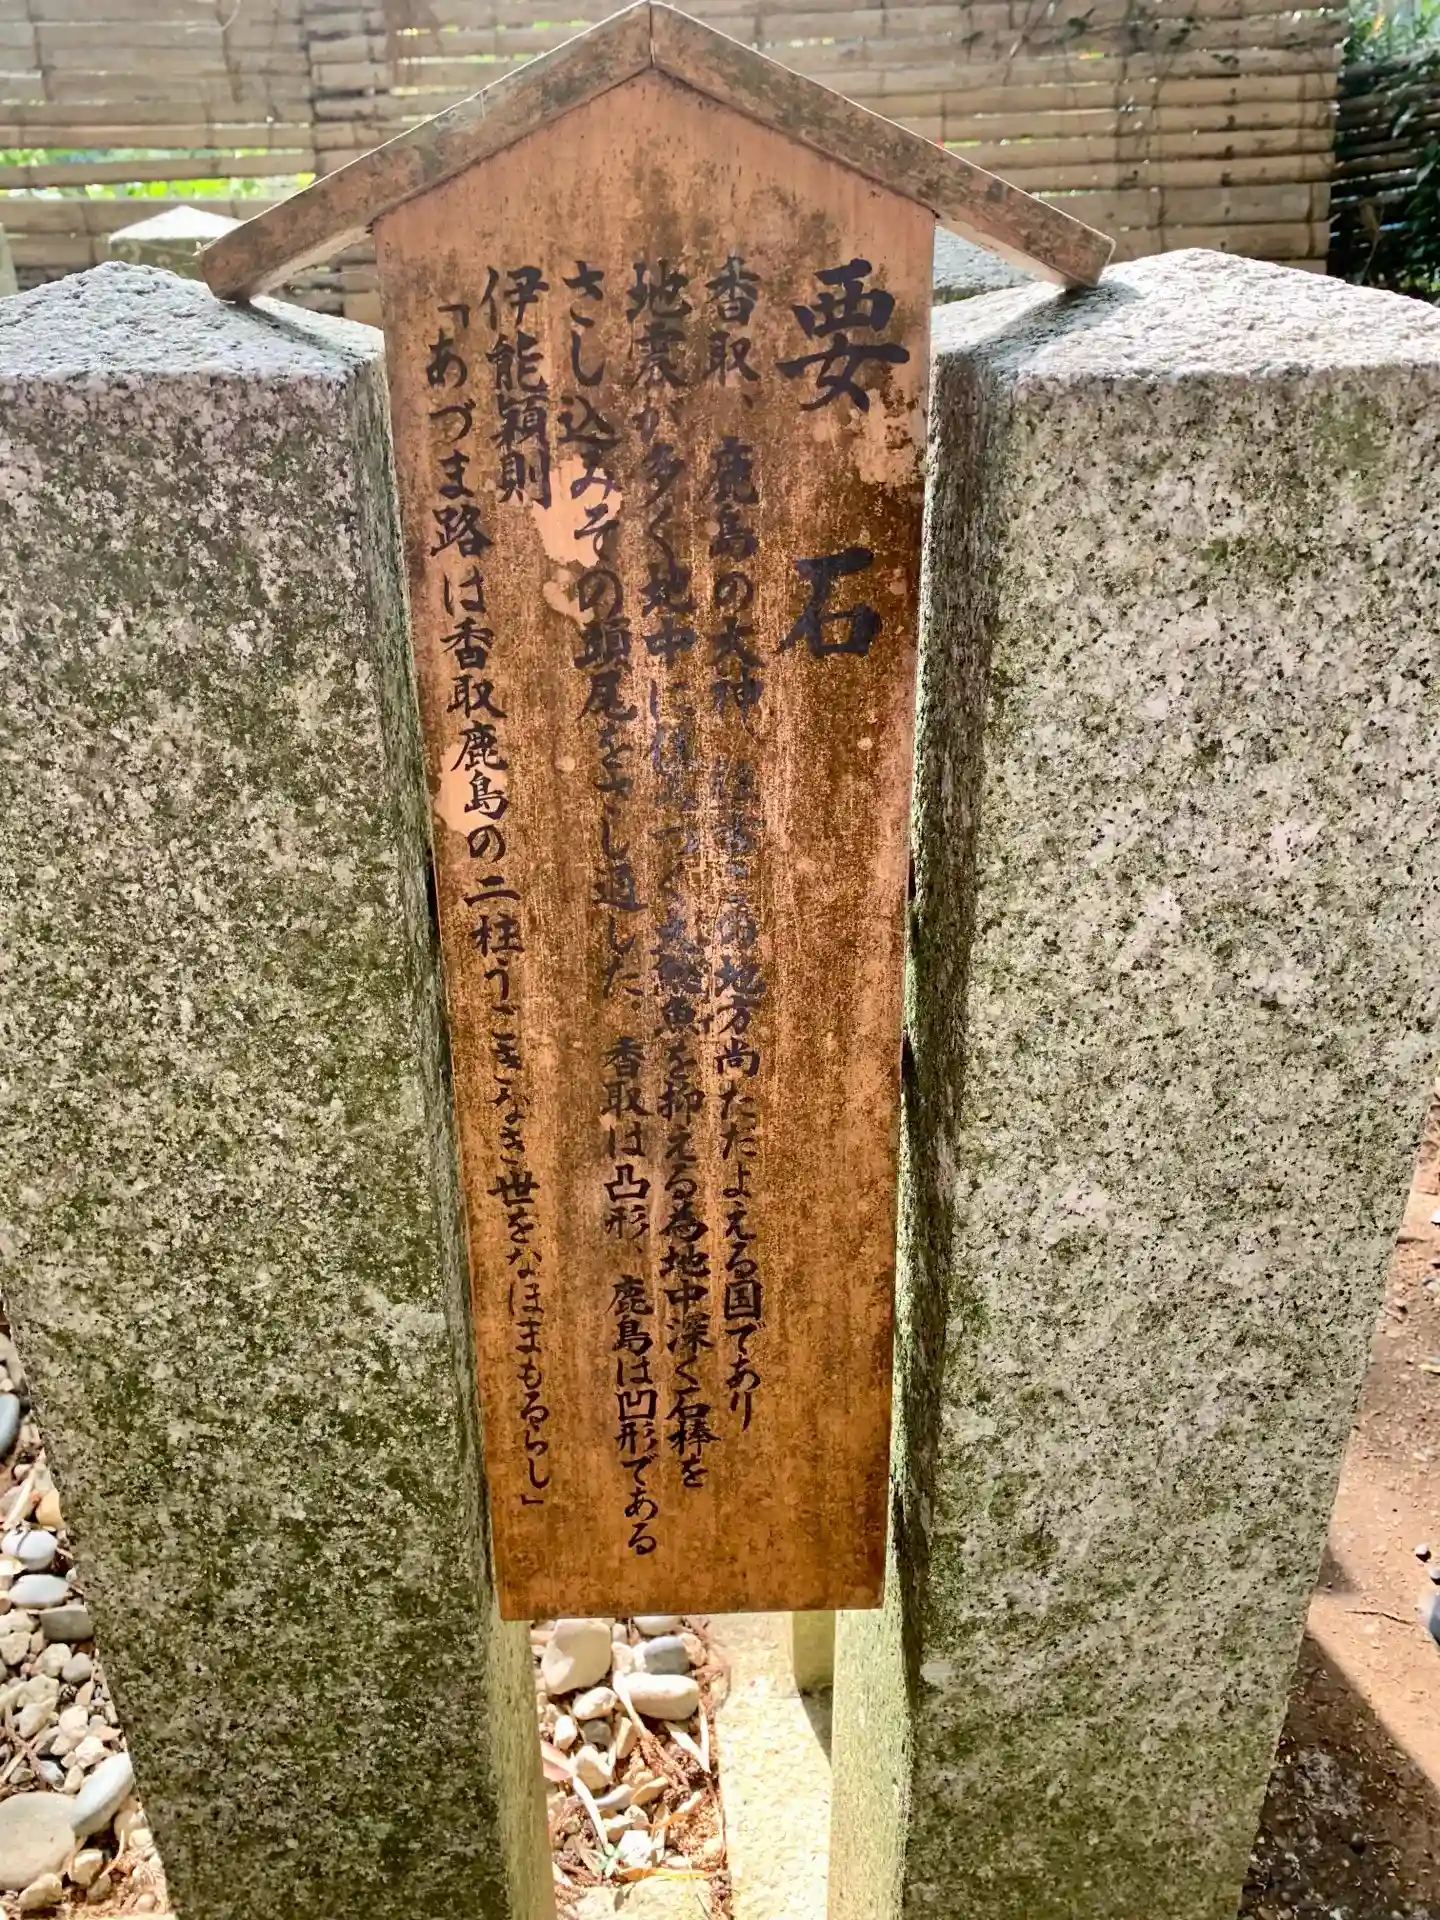 要石
香取、鹿島の大神、往古この地方尚ただよえる国であり
地震が多く地中に住みつく大鯰魚を抑える為地中深く石棒を
さし込みその頭尾をさし通した、香取は凸形、鹿島は凹形である
伊能穎則
「あづま路は香取鹿島の二柱うごきなき世をなほまもるらし」